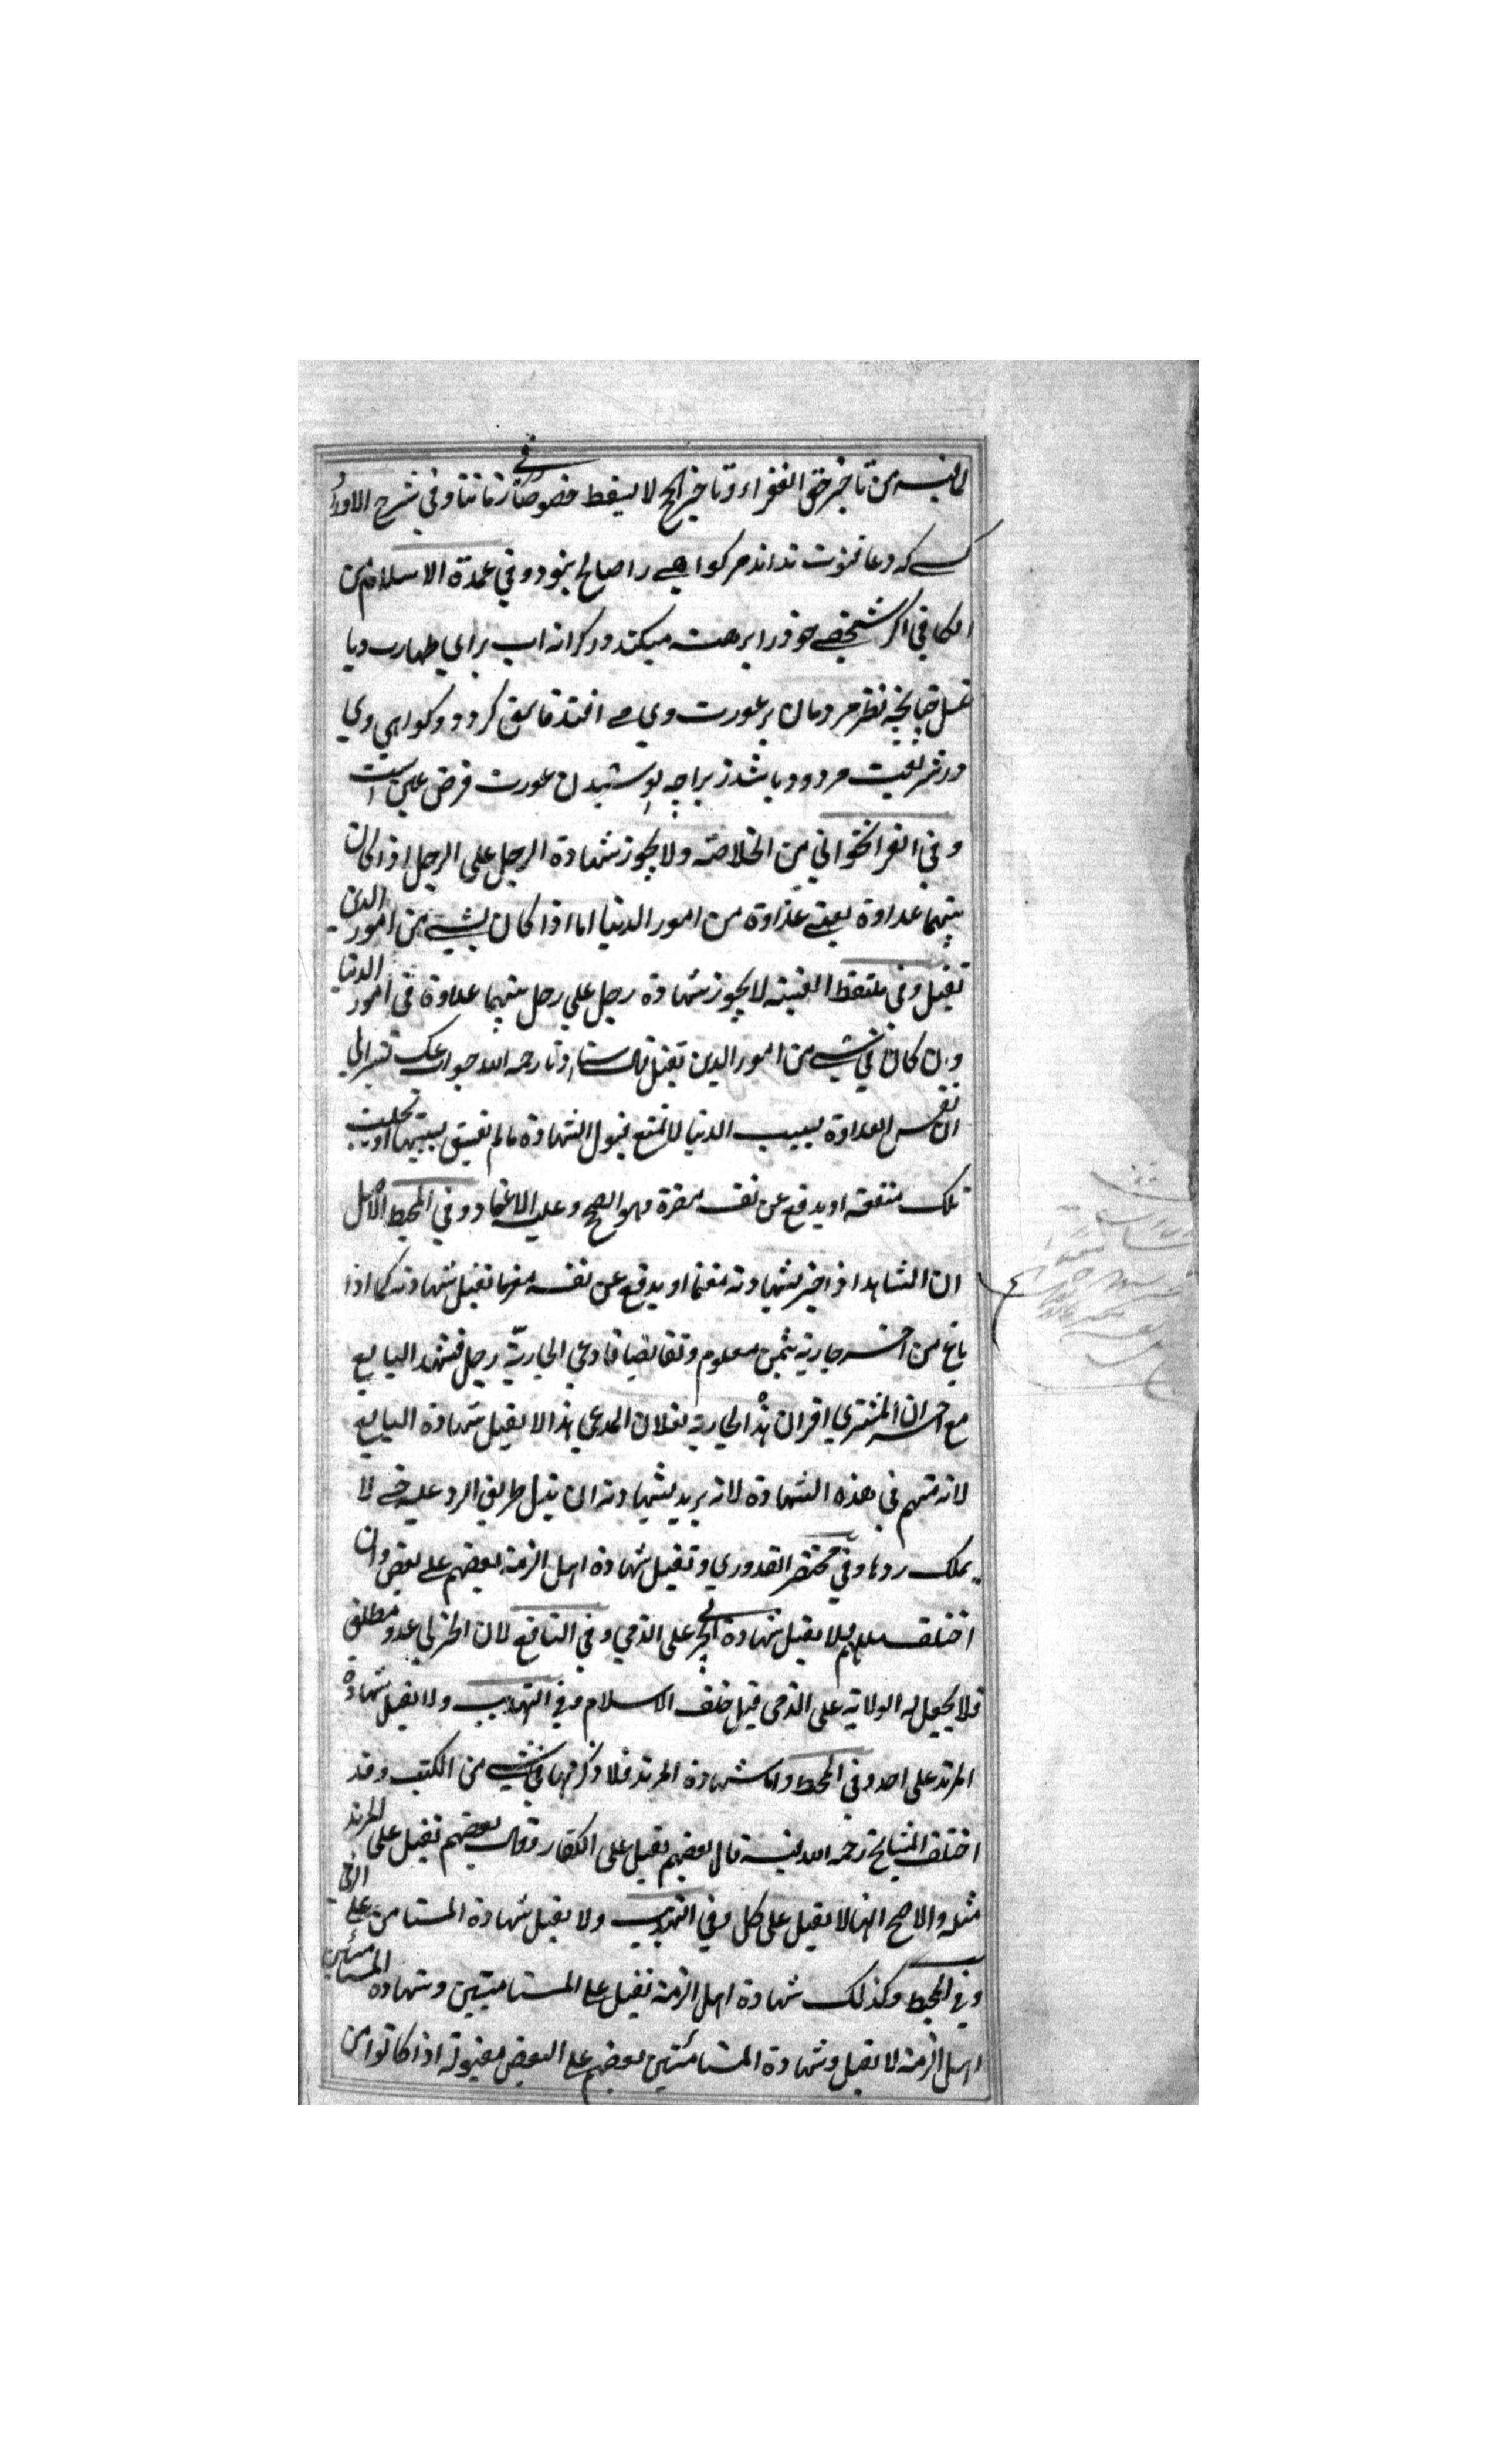 لما فيه من تاخير حق الفقراء وتاخير الحج لا يسقط خصوصا في زماننا وفي شرح الاوراد
كسے که دعا قنوت نداند مر کواهے را صالح نبود وفي عمدة الاسلام من
الكافي اكر شخصے خود را برهنه ميكند در كرانه اب براي طهارت ويا
غسل چنانچه نظر مردمان بر عورت وي مے افتد فاسق كردد و كواهي وي
در شريعت مردود باشد زيراچه پوشيدن عورت فرض عين است
وفي الفراخواني من الخلاصة ولا يجوز شهادة الرجل على الرجل اذا كان
بينهما عداوة يعني عداوة من امور الدنيا اما اذا كان بشيء من امور الدين
تقبل وفي ملتقط القنية لا يجوز شهادة رجل علي رجل بينهما عداوة في امور الدنيا
وان كان في شيء من امور الدين تقبل قال استاذنا رحمه الله جوابك تشير الى
ان نفس العداوة بسبب الدنيا لا تمنع قبول الشهادة مالم يفسق بسببها او يجلب
تلك منفعة او يدفع عن نفسه مضرة وهو الصحيح وعليه الاعتماد وفي المحيط الاصل
ان الشاهد اذا جر بشهادته مغنما او يدفع عن نفسه مغرما تقبل شهادته كما اذا
باع من اخر جارية بثمن معلوم وتقابضا فادعي الجارية رجل فشهد البايع
مع اخر ان المشتري اقر ان هذه الجارية لفلان المدعي هذا لا يقبل شهادة البايع
لانه متهم في هذه الشهادة لانه يريد بشهادته ان يبطل طريق الرد عليه حتى لا
يملك ردها وفي مختصر القدوري وتقبل شهادة اهل الذمة بعضهم على بعض وان
اختلف مللهم ولا يقبل شهادة الحربي على الذمي وفي النافع لان الحربي عدو مطلق
فلا يجعل له الولاية على الذمي قبل خلف الاسلام وفي التهذيب ولا يقبل شهادة
المرتد على احد وفي المحيط واما شهادة المرتد فلا ذكر لها في شيء من الكتب وقد
اختلف المشايخ رحمه الله فيه قال بعضهم يقبل على الكفار وقال بعضهم تقبل على المرتد
مثله والاصح انها لا يقبل على كل وفي التهذيب ولا يقبل شهادة المستامن على الذمي
وفي المحيط وكذلك شهادة اهل الذمة تقبل على المستامنين وشهادة المستامنين
اهل الذمة لا تقبل وشهادة المستامنين بعضهم على البعض مقبولة اذا كانوا من